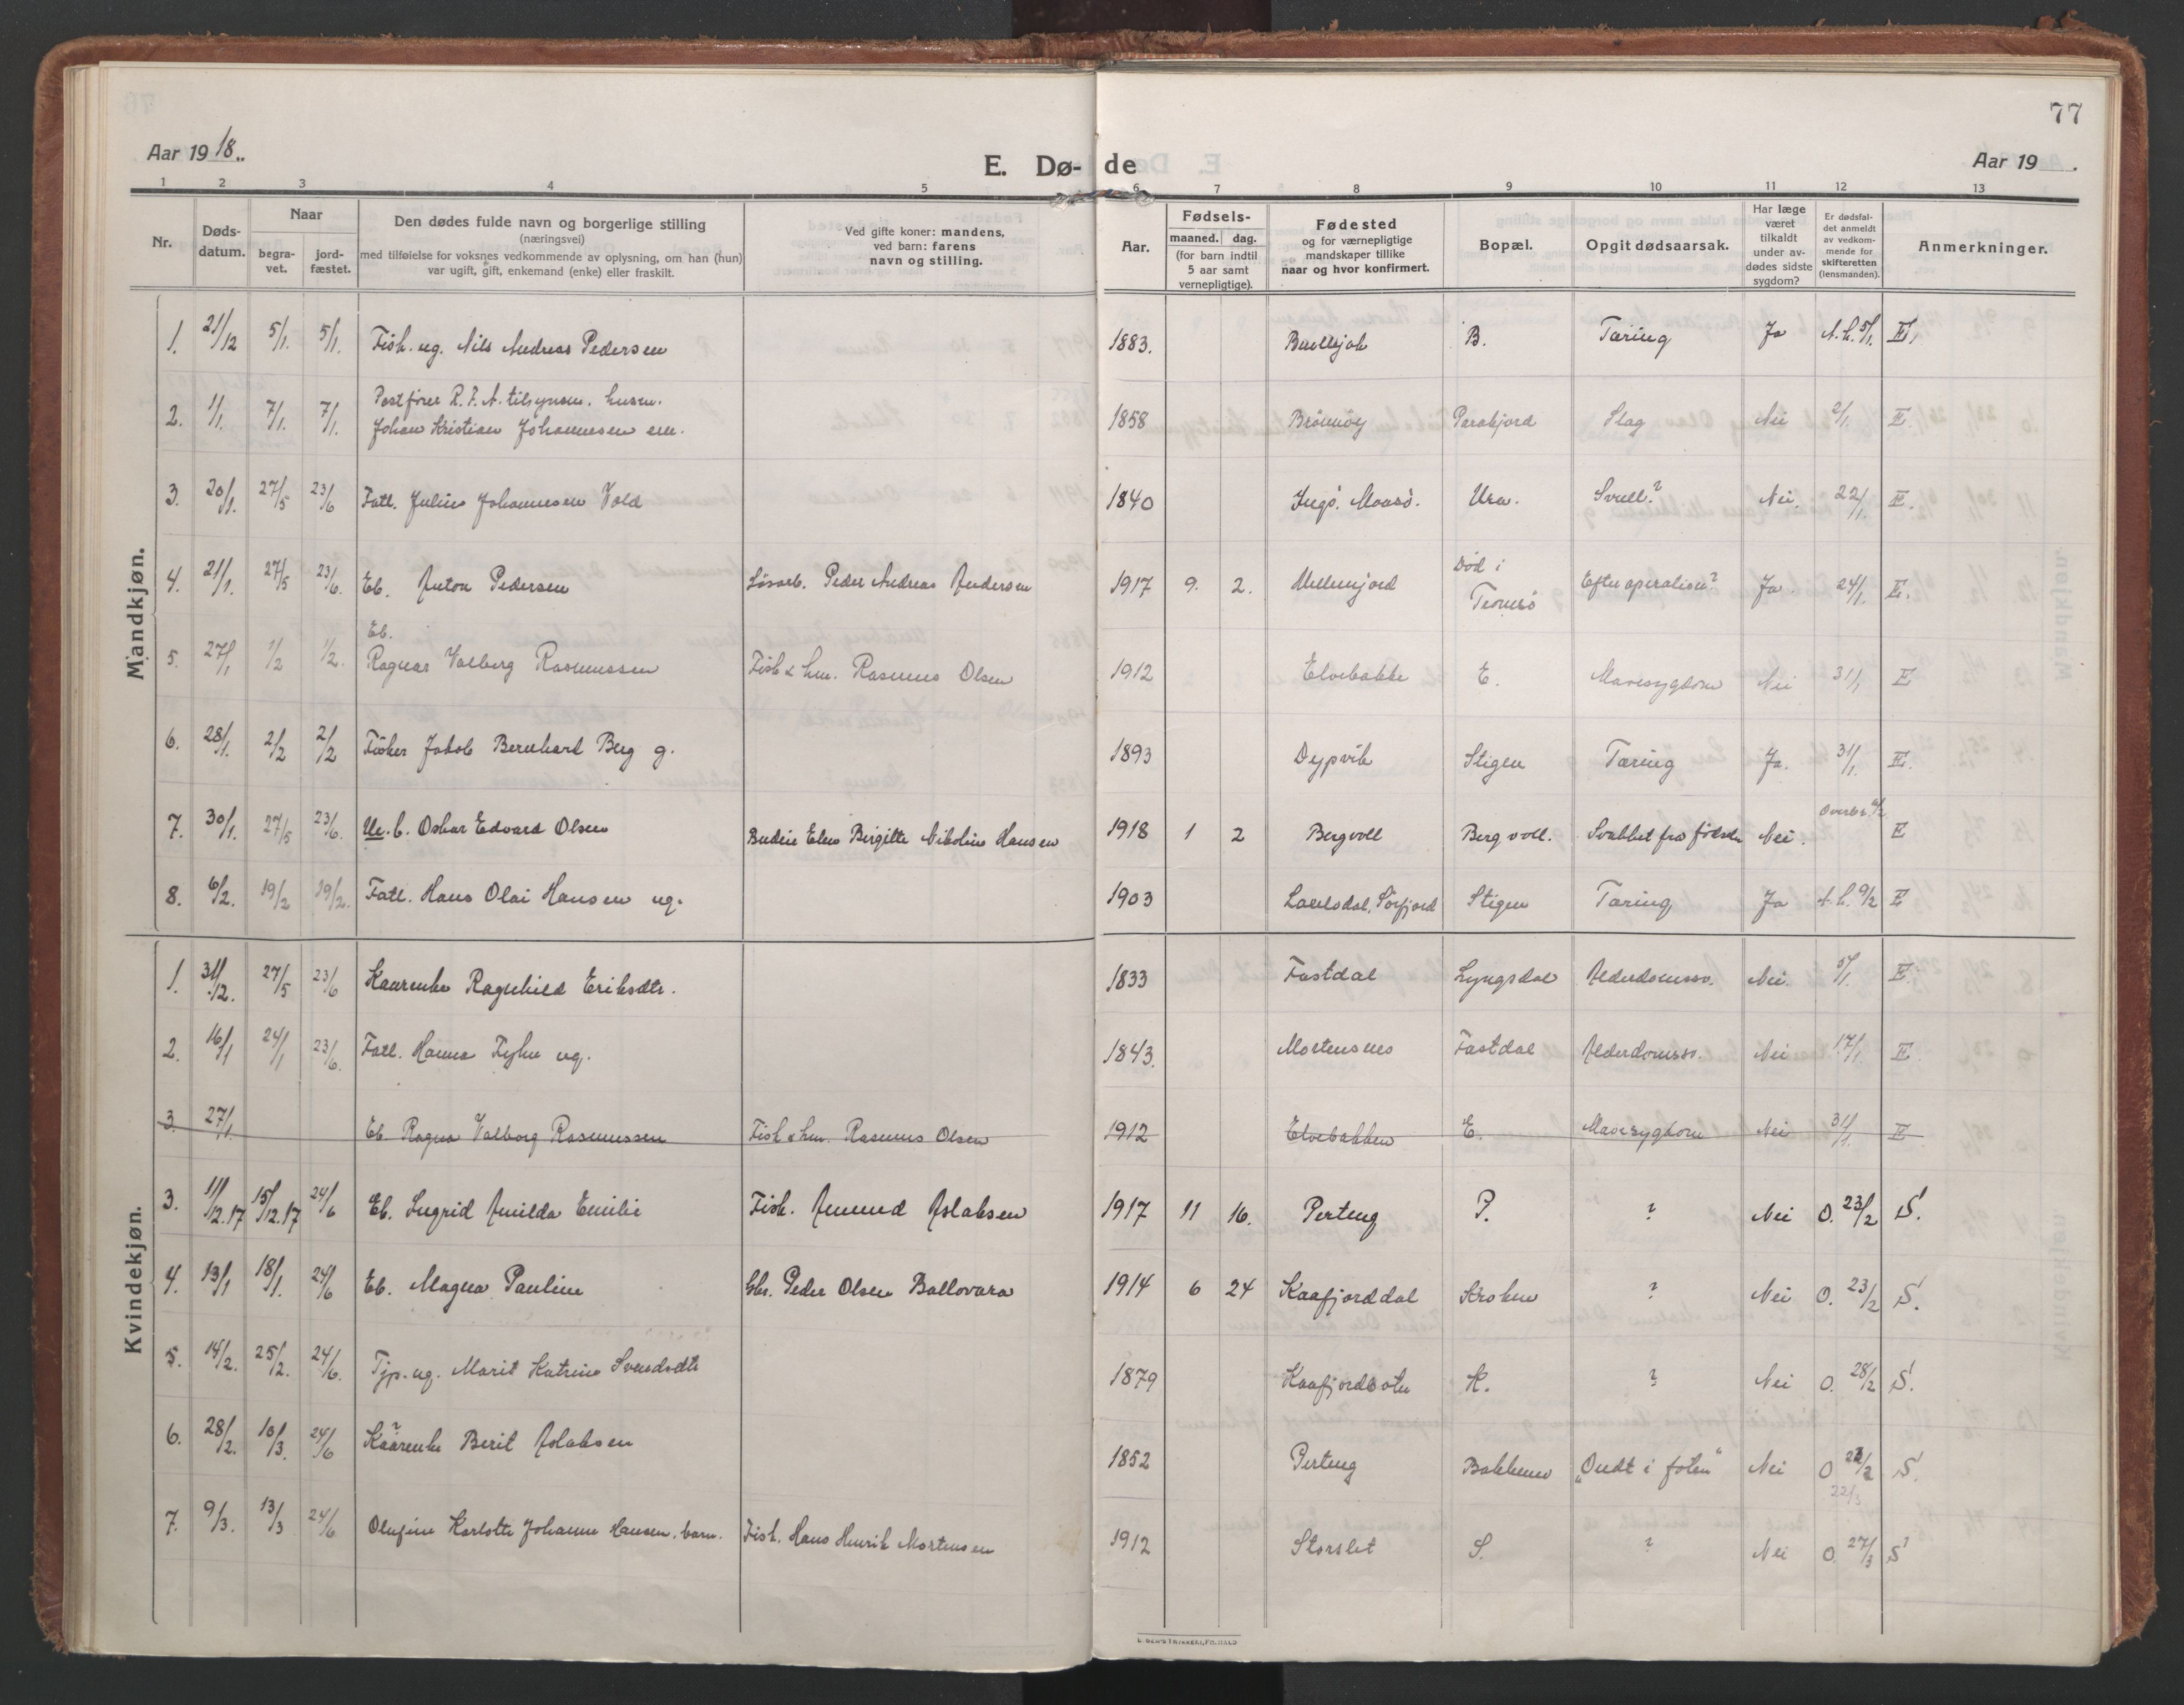 77
Aar 1918.
E. Dø- de
Aar 19
1 2 3 4 5 6 7 8 9 10 11 12 13
Nr.
Døds-
datum.
Naar
begra-
vet.
jord-
fæstet.
Den dødes fulde navn og borgerlige stilling
(næringsvei)
med tilføielse for voksnes vedkommende av oplysning, om han (hun)
var ugift, gift, enkemand (enke) eller fraskilt.
Ved gifte koner: mandens,
ved barn: farens
navn og stilling.
Aar.
Fødsels-
maaned. dag.
(for barn indtil
5 aar samt
vernepligtige).
Fødested
og for værnepligtige
mandskaper tillike
naar og hvor konfirmert.
Bopæl.
Opgit dødsaarsak.
Har læge
været
tilkaldt
under av-
dødes sidste
sygdom?
Er dødsfal-
det anmeldt
av vedkom-
mende for
skifteretten
(lensmanden).
Anmerkninger.
Mandkjøn.
1. 21/12 5/1. 5/1. Fisk. ug. Nils Andreas Pedersen 1883. B. Tæring Ja 5/1. E.
2. 1/1. 7/1. 7/1. Postfører R.F.A. tilsynsm. husm.
Johan Kristian Johannesen em. 1858 Brönnöy Parakjord Slag Nei 2/1. E.
3. 20/1. 27/5 23/6 Fatl. Julius Johannesen Vold 1840 Ingö. Maasö. Ura. Svull? Nei. 22/1. E.
4. 21/1. 27/5 23/6. Eb. Anton Pedersen Lösarb. Peder Andreas Andersen 1917 9. 2. Ullenfjord Död i
Tromsö Efter operation? Ja. 24/1. E.
5. 27/1 1/2 1/2. Eb.
Ragnar Valberg Rasmussen Fisk & hm. Rasmus Olsen 1912 Elvebakke E. Mavesygdom Nei 31/1 E
6. 28/1. 2/2 2/2 Fisker Jakob Bernhard Berg g. 1893 Dypvik Stigen Tæring Ja. 31/1. E.
7. 30/1. 27/5 23/6. Ue. b. Oskar Edvard Olsen Budeie Elen Birgitte Nikoline Hansen 1918 1 2 Bergvoll Bergvoll. Svakhet fra födsele Nei. E
8. 6/2. 19/2 19/2. Fatl. Hans Olai Hansen ug. 1903 Lavelsdal, Sörfjord Stigen Tæring Ja 9/2 E
Kvindekjøn.
1. 31/12. 27/5 23/6 Kaarenke Ragnhild Eriksdtr. 1833 Fastdal Lyngsdal Alderdomssv. Nei. 5/1. E.
2. 16/1 24/1 23/6. Fatl. Hanna Fyhn ug. 1843. Mortensnes Fastdal Alderdomssv. Nei 17/1. E
3. 27/1. Eb. Ragna Valborg Rasmussen Fisk & hm. Rasmus Olsen 1912 Elvebakken E. Mavesygdom Nei 31/1. E
3. 11/12.17 15/12.17 24/6 Eb. Ingrid Amilda Emilie Fisk. Amund Aslaksen 1917 11 16. Perteng P. ? Nei O. 23/2 S.
4. 13/1 18/1. 24/6 Eb. Magna Pauline Gbr. Peder Olsen Ballovara 1914 6 24 Kaafjorddal Kroken ? Nei O. 23/2 S.
5. 14/2. 25/2. 24/6. Tjp. ug. Marit Katrine Svendsdtr 1879 Kaafjordbotn K. ? Nei O. 28/2 S.
6. 28/2. 10/3. 24/6 Kaarenke Berit Aslaksen 1852 Perteng Bakkene "Ondt i foten" Nei O 22/3 S.
7. 9/3. 13/3 24/6 Olufine Karlotte Johanne Hansen. barn. Fisk. Hans Henrik Mortensen 1912 Storslet S. ? Nei O. 27/3 S